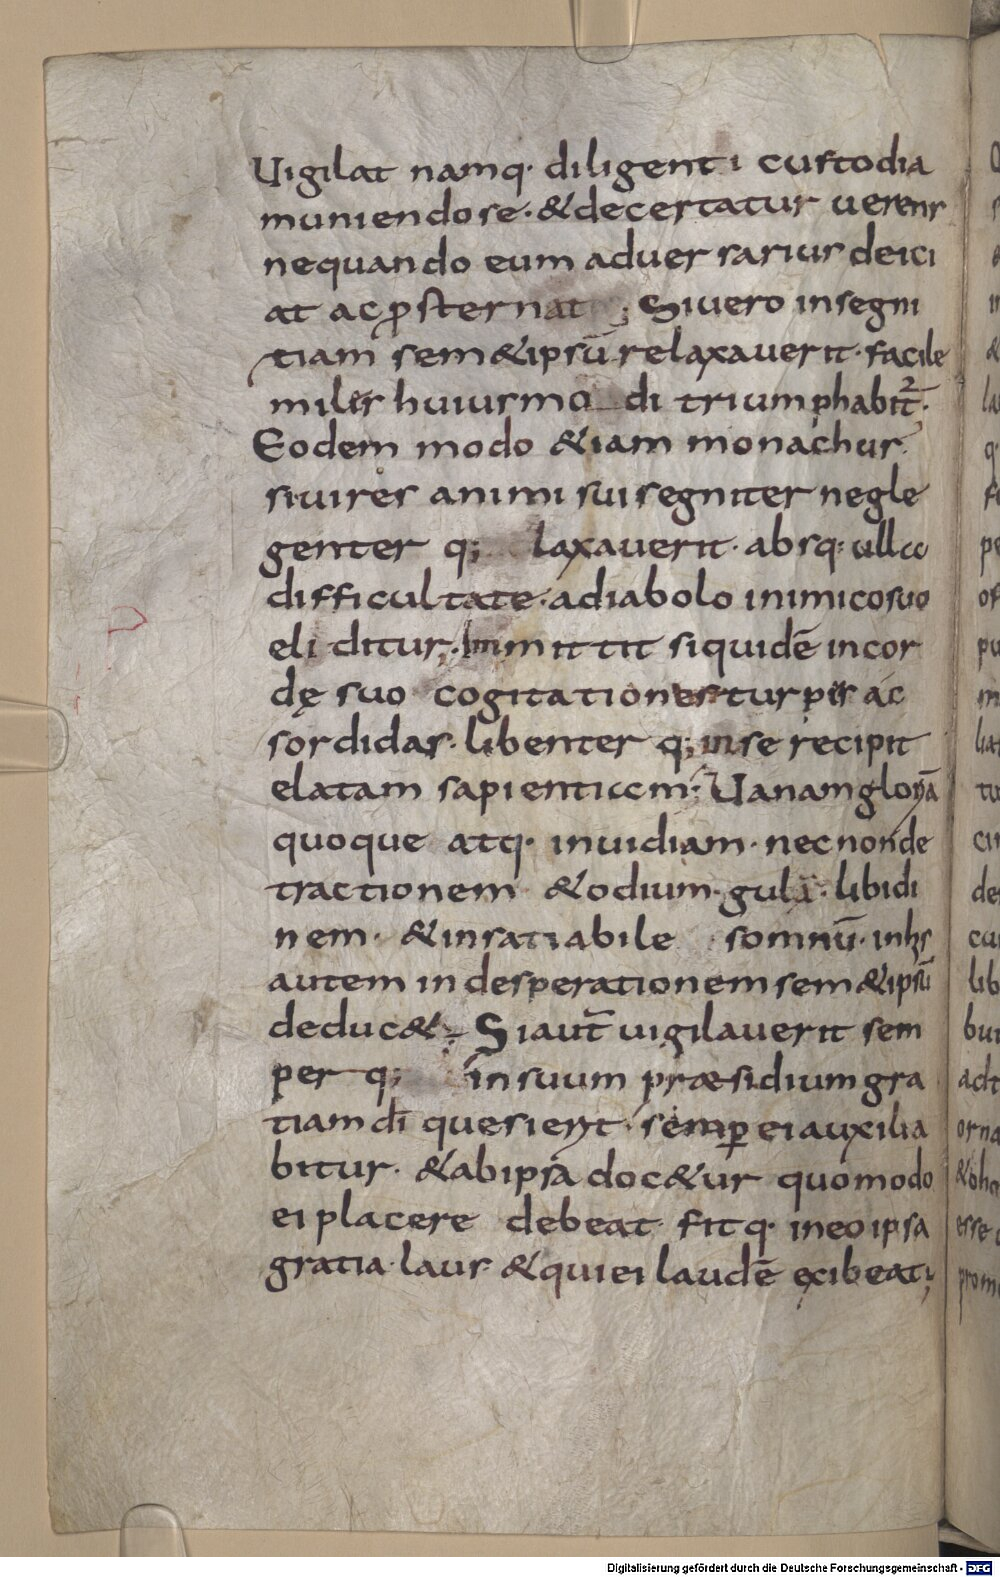 Uigilat namq· diligenti custodia
muniendo se· &decertatur uerens
nequando eum aduersarius deici
at ac ꝓsternat ; Si uero in segni
tiam sem&ipsū relaxauerit· facile
miles huiusmo di triumphabit᷑·
Eodem modo &iam monachus
si uires animi sui segniter negle
genter q; laxauerit· absq: ullo
difficultate· adiabolo inimico suo
eliditur;· Immittit siquidē in cor
dę suo cogitationes turpes ac
sordidas· libenter q; in se recipit
elatam sapientiam; Uanam gloriā
quoque atq· inuidiam· nec non de
tractionem &odium· gulā· libidi
nem· &insatiabile somnū· in his
autem in desperationem sem&ipsū
deduc&; Si aut̄ uigilauerit sem
per q; in suum præsidium gra
tiam dī quesierit· semꝑ ei auxilia
bitur· &ab ipsa doc&ur quomodo
ei placere debeat· fit q· in eo ipsa
gratia· laus &qui ei laudē exibeat;
Digitalisierung gefördert durch die Deutsche Forschungsgemeinschaft - DFG